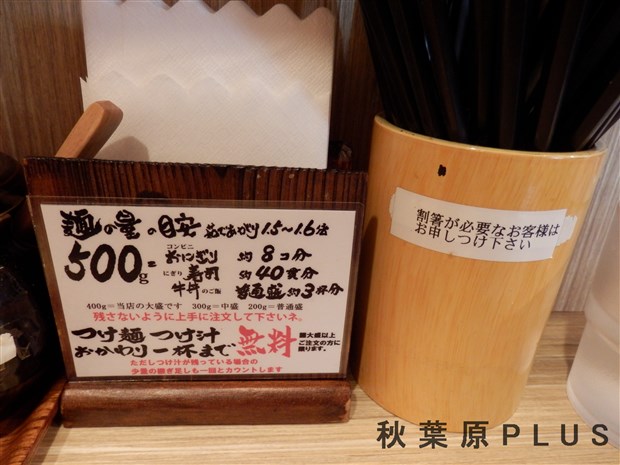 麺の量の目安 茹であがり1.5〜1.6倍
500g=
コンビニ
おにぎり 約8コ分
にぎり寿司 約40貫分
牛丼のご飯 普通盛約3杯分
400g=当店の大盛です 300g=中盛 200g=普通盛
残さないように上手に注文して下さいネ。
つけ麺 つけ汁
おかわり一杯まで 無料
麺大盛以上
ご注文の方に
限ります。
ただしつけ汁が残っている場合の
少量の継ぎ足しも一回とカウントします
割箸が必要なお客様は
お申しつけ下さい
秋葉原PLUS